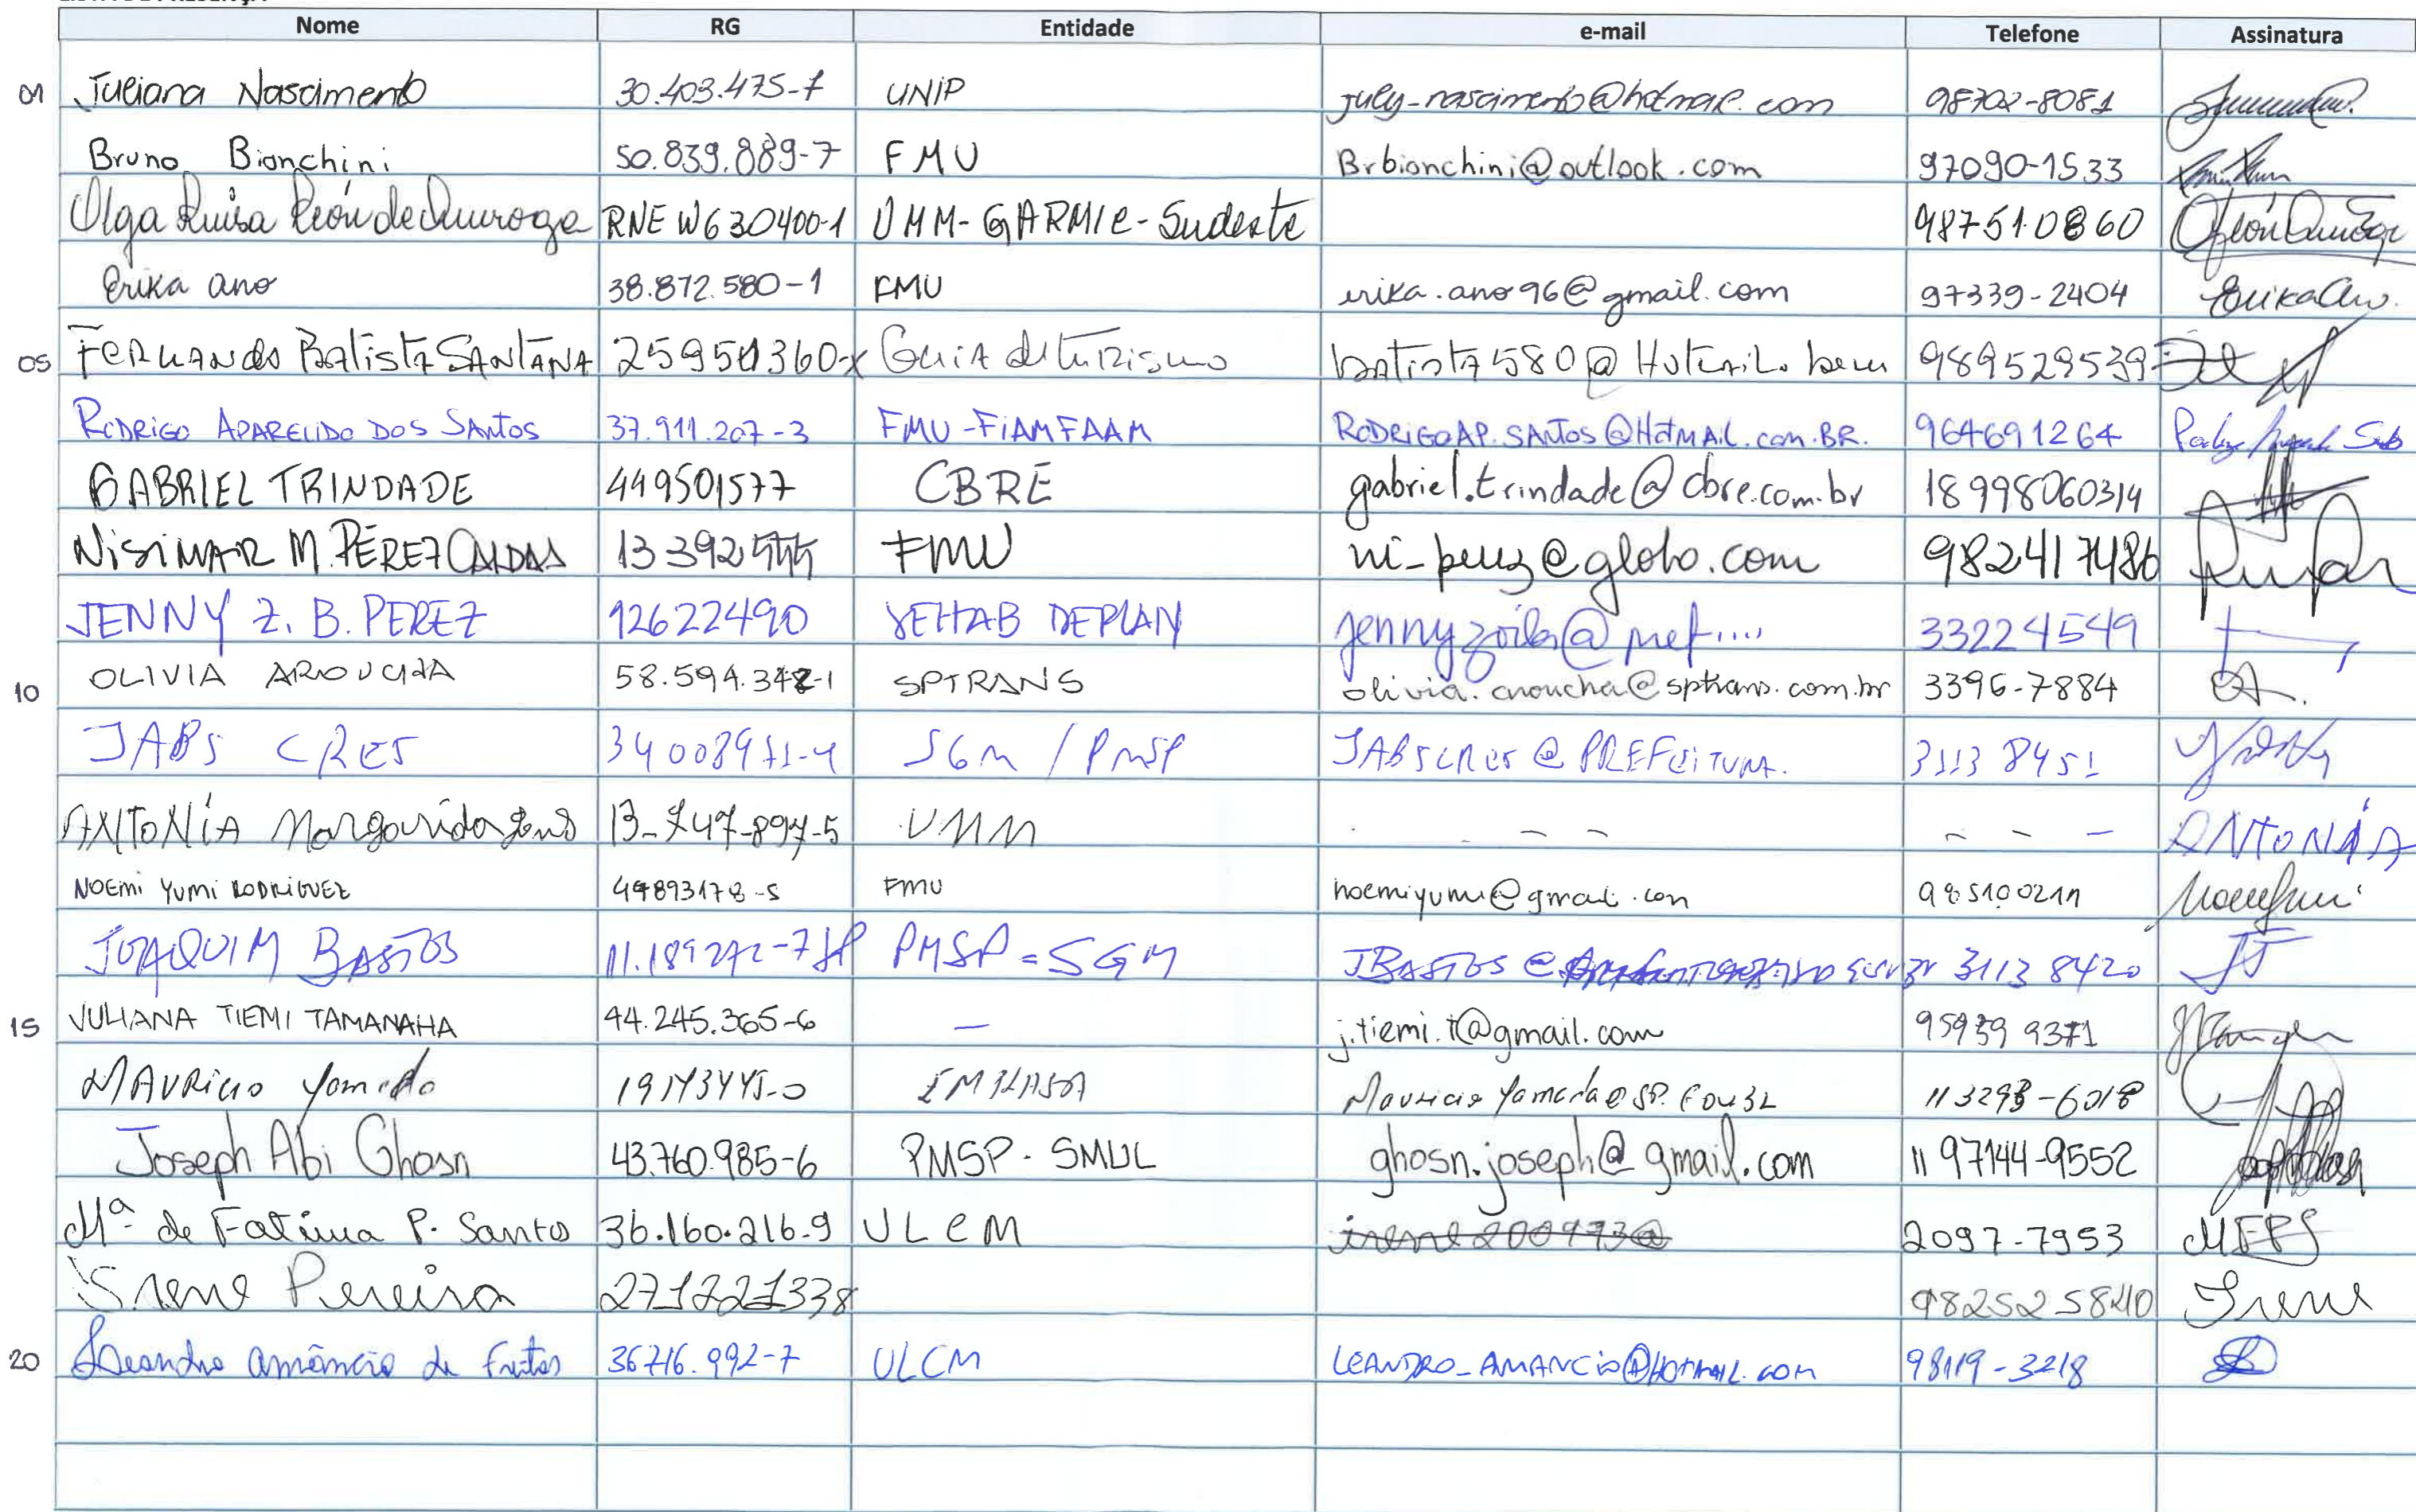 Nome RG Entidade e-mail Telefone Assinatura
01 Juliana Nascimento 30.403.475-7 UNIP july-nascimento@hotmail.com 98702-8081
Bruno Bianchini 50.839.889-7 FMU Brbianchini@outlook.com 97090-1533
Olga Luisa León de Quiroga RNE W630400-1 UMM-GARMIC-Sudeste 987510860
Erika Ano 38.872.580-1 FMU erika.ano96@gmail.com 97339-2404 Erika Ano.
05 Fernando Batista SANTANA 25950360-x Guia de turismo 989529539
RODRIGO APARECIDO DOS SANTOS 37.911.207-3 FMU-FIAMFAAM RODRIGOAP.SANTOS@HOTMAIL.COM.BR. 964691264
GABRIEL TRINDADE 449501577 CBRE gabriel.trindade@cbre.com.br 18998060314
NISIMAR M. PÉREZ CALDAS 13392555 FMU ni-perez@globo.com 982417486
JENNY Z. B. PEREZ 12622490 SEHAB DEPLAN jennyzoila@pref.... 33224549
10 OLIVIA AROUCHA 58.594.342-1 SPTRANS olivia.aroucha@sptrans.com.br 3396-7884
JABS CRES 34008971-4 SGM / PMSP JABSCRES @ PREFEITURA. 3113 8451
ANTONÍA Margarida 13-747-897-5 UMM - - - - - ANTONÍA
NOEMI YUMI RODRIGUEZ 49893178-5 FMU noemiyumi@gmail.com 985100211
JOAQUIM BASTOS 11.189272-7 PMSP = SGM JBASTOS @ 3113 8420
15 JULIANA TIEMI TAMANAHA 44.245.365-6 — j.tiemi.t@gmail.com 95939 9371
MAURICIO Yamada 19173445-0 EMPLASA 113293-6018
Joseph Abi Ghosn 43.760.985-6 PMSP - SMUL ghosn.joseph@gmail.com 11 97144-9552
Mª de Fatima P. Santos 36.160.216.9 ULCM irene200973@ 2097-7953 MFPS
Irene Pereira 271221338 982525840 Irene
20 Leandro Amâncio de Freitas 36716.992-7 ULCM LEANDRO_AMANCIO@HOTMAIL.COM 98119-3218